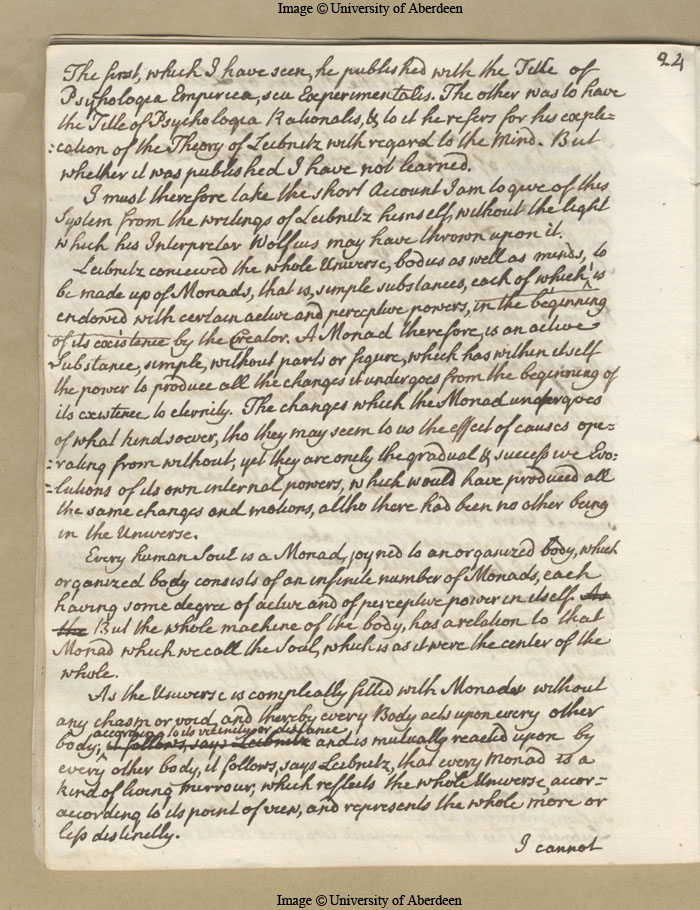 Image © University of Aberdeen
24
The first, which I have seen, he published with the Title of
Psychologia Empirica, seu Experimentalis. The other was to have
the Title of Psychologia Rationalis, & to it he refers for his expli=
:cation of the Theory of Leibnitz with regard to the Mind. But
whether it was published I have not learned.
I must therefore take the short Account I am to give of this
System from the writings of Leibnitz himself, without the light
which his Interpreter Wolfius may have thrown upon it.
Leibnitz conceived the whole Universe, bodies as well as minds, to
be made up of Monads, that is, simple substances, each of which is
endowed with certain active and perceptive powers, in the beginning
of its existence by the Creator. A Monad therefore, is an active
Substance, simple, without parts or figure, which has within itself
the power to produce all the changes it undergoes from the beginning of
its existence to eternity. The changes which the Monad undergoes
of what kind soever, tho they may seem to us the effect of causes ope=
:rating from without, yet they are onely the gradual & successive Evo=
:lutions of its own internal powers, which would have produced all
the same changes and motions, altho there had been no other being
in the Universe.
Every human Soul is a Monad, joyned to an organized body, which
organized body consists of an infinite number of Monads, each
having some degree of active and of perceptive power in itself. As
the But the whole machine of the body, has a relation to that
Monad which we call the Soul, which is as it were the center of the
whole.
As the Universe is compleatly filled with Monads without
any chasm or void, and thereby every Body acts upon every other
according to its vicinity or distance
body, it follows, says Leibnitz and is mutually reacted upon by
every other body, it follows, says Leibnitz, that every Monad is a
kind of living mirrour, which reflects the whole Universe, accor=
according to its point of view, and represents the whole more or
less distinctly.
I cannot
Image © University of Aberdeen